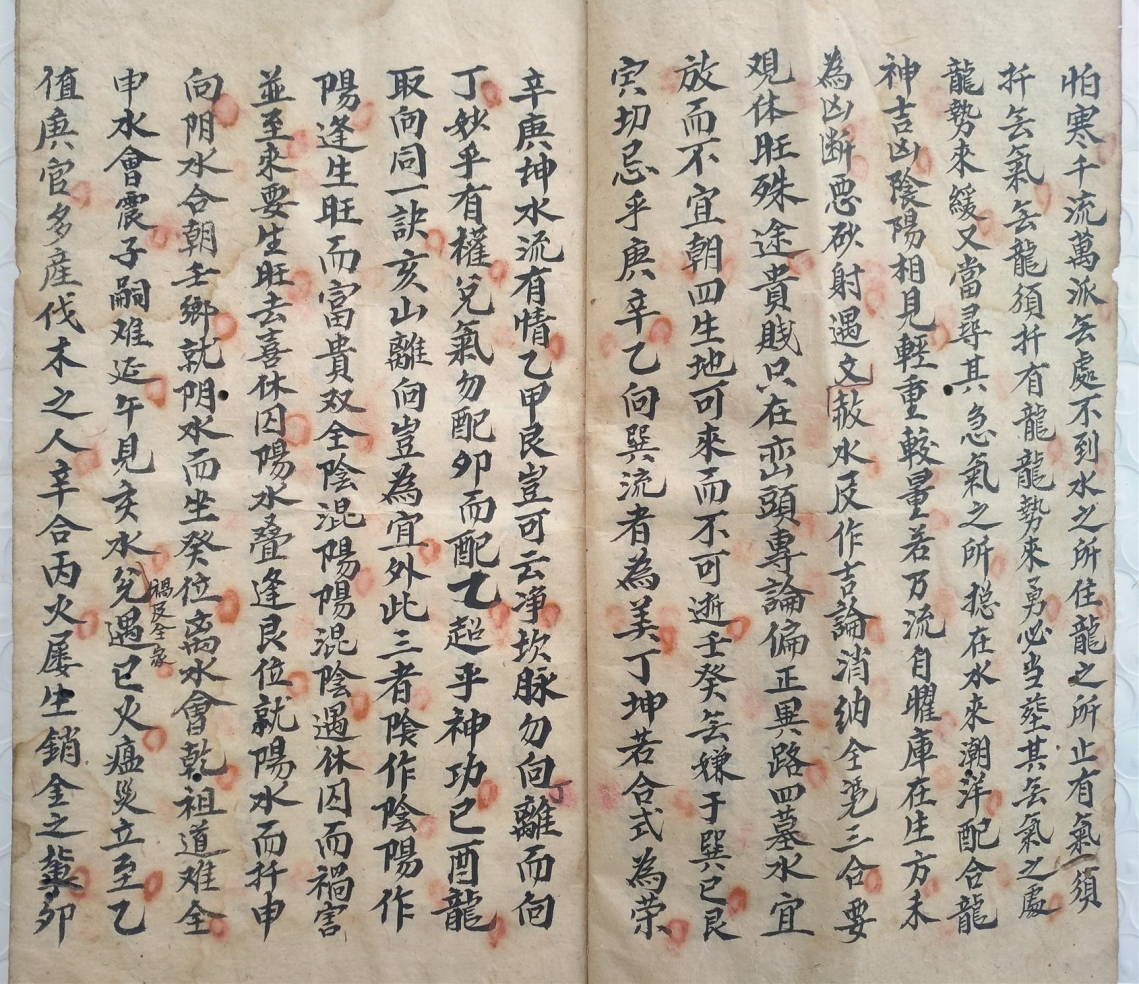 怕寒千流萬派㒵處不到水之所住龍之所止有氣須
扦㒵氣㒵龍須扦有龍龍勢來勇必当塟其㒵氣之處
龍勢來緩又當尋其急氣之所揔在水來潮洋配合龍
神吉凶陰陽相見輕重較量若万流自曜庫在生方未
為凶断恶砂射遇文赦水反作吉論消納全凴三合要
覌体旺殊途貴賎只在峦頭專論偏正異路四墓水宜
放而不宜朝四生地可來而不可逝壬癸㒵嫌于巽巳艮
寅切忌乎庚辛乙向巽流者為美丁坤若合式為荣
辛庚坤水流有情乙甲艮豈可云净坎脉勿向離而向
丁
丁妙乎有權兌氣勿配夘而配乙超乎神功巳酉龍
取向同一訣亥山離向豈為宜外此三者陰作陰陽作
陽逢生旺而富貴双全陰混陽陽混陰遇休囚而禍害
並至來要生旺去喜休囚陽水叠逢艮位就陽水而扦申
向阴水合朝壬鄉就阴水而坐癸位离水會乾祖道难全
禍及全家
申水會震子嗣难延午見亥水兌遇巳火瘟災立至乙
值庚官多產伐木之人辛合丙火屡生銷金之輩夘